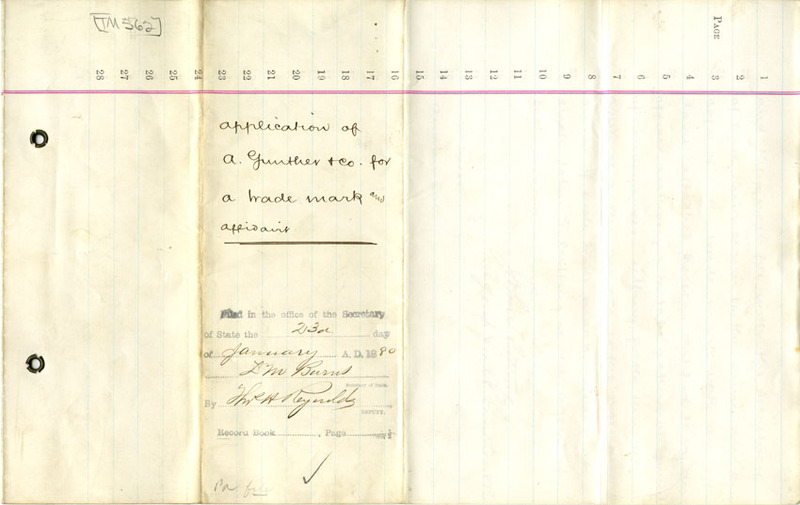 [TM 562]
PAGE
1
2
3
4
5
6
7
8
9
10
11
12
13
14
15
16
17
18
19
20
21
22
23
24
25
26
27
28
application of
A. Gunther & Co. for
a trade mark and
affidavit
Filed in the office of the Secretary
of State the 23d day
of January A. D. 1880
D M Burns
Secretary of State.
By Thos H Reynolds
DEPUTY.
Record Book , Page